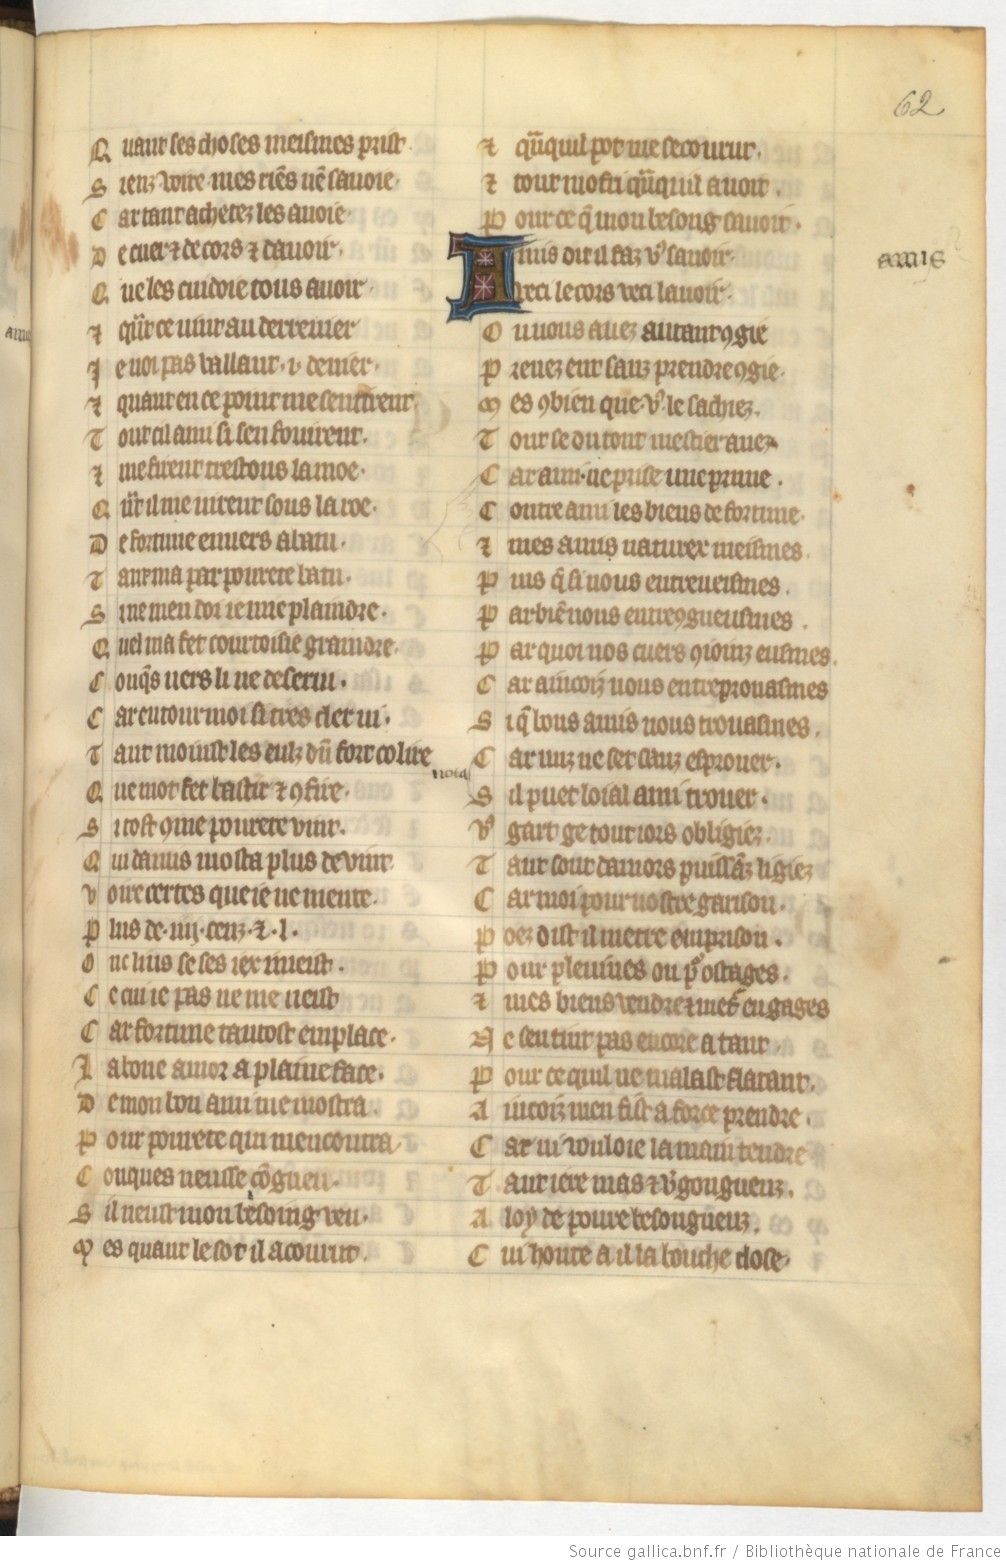 62
Quant ses choses meismes prist
Sienz voire mes riẽs nẽ savoie
Car tant achetez les avoie
De cuer ⁊ de cors ⁊ davoir
Que les cuidoie tous avoir
⁊ q̃nt ce vint au derrenier
Je noi pas vallant .i. denier
⁊ quant en ce point me sentirent
Tout cil ami si sen fouirent
⁊ me firent trestous la moe
Qñt il me virent sous la roe
De fortune envers abatu
Tant ma par povrete batu
Si ne men doi ie mie plaindre
Quel ma fet courtoisie graindre
Conq̃s vers li ne deservi
Car entour moi si tres cler vi
Tant moinst les eulz dũ fort colire
nota
Que mot fet bastir ⁊ ꝯfire
Si tost ꝯme povrete vint
Qui damis mosta plus de vint
Voire certes que ie ne mente
Plus de .iiij. cenz .⁊ .l.
Onc lins se ses iex i meist
Ce cui ie pas ne me neist
Car fortune tantost emplace
La bone amor a plaine face
De mon bon ami me mostra
Pour povrete qui mencontra
Conques neusse cõgneu
Sil neust mon besoing veu
Mes quant le sot il acourut
⁊ q̃nquil pot me secourut
⁊ tout mofri q̃nquil avoit
Pour ce q̃ mon besong savoit
Amis dit il faz vꝰ savoir
amis
Veci le cors veci lavoir
Ou vous avez autant ꝯgie
Prenez ent sanz prendre ꝯgie
Mes ꝯbien que vꝰ le sachiez
Tout se du tout mestier avez
Car ami ne prise une prune
Contre ami les biens de fortune
⁊ mes amis naturex meismes
Puis q̃ si nous entreveismes
Par biẽ nous entreꝯgneusmes
Par quoi nos cuers ꝯioinz eusmes
Car aincoiz nous entreprouasmes
Si q̃ bons amis nous trouasmes
Car nuz ne set sanz esprover
Sil puet loial ami trouer
Vꝰ gart ge touz iors obligiez
Tant sont damors puissãz ligiez
Car moi pour vostre garison
Poez dist il metre emprison
Pour plevines ou pꝰ ostages
⁊ mes biens vendre ⁊ metẽ en gages
Ne sen tint pas encore a tant
Pour ce quil ne malast flatant
Aincoiz men fist a force prendre
Car ni vouloie la main tendre
Tant iere mas ⁊ vgongneuz
A loy de povre besongneuz
Cui honte a il la bouche close
Source gallica.bnf.fr / Bibliothèque nationale de France